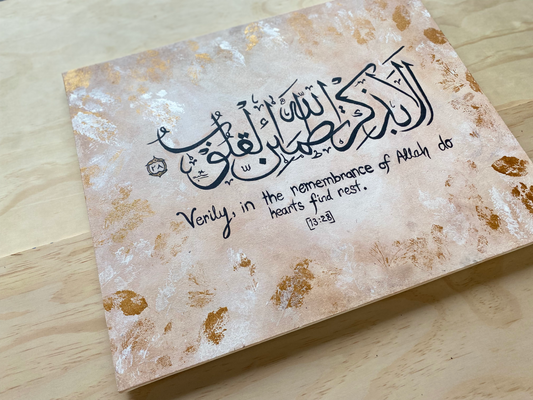 أَلَا بِذِكْرِ اللَّهِ تَطْمَئِنُّ الْقُلُوبُ ٢٨
Verily, in the remembrance of Allah do
hearts find rest.
[13-28]